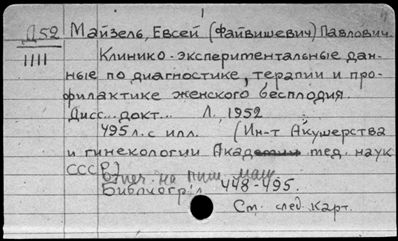 Д52 Майзель, Евсей (Файвишевич) Павлович.
1111 Клинико-экспериментальные дан-
ные по диагностике, терапии и про-
филактике женского бесплодия.
Дисс... докт... Л., 1952
495 л. с илл. (Ин-т Акушерства
и гинекологии Акад. мед. наук
СССР)
Отпеч. на пиш. маш.
Библиогр: л. 448-495.
См. след. карт.